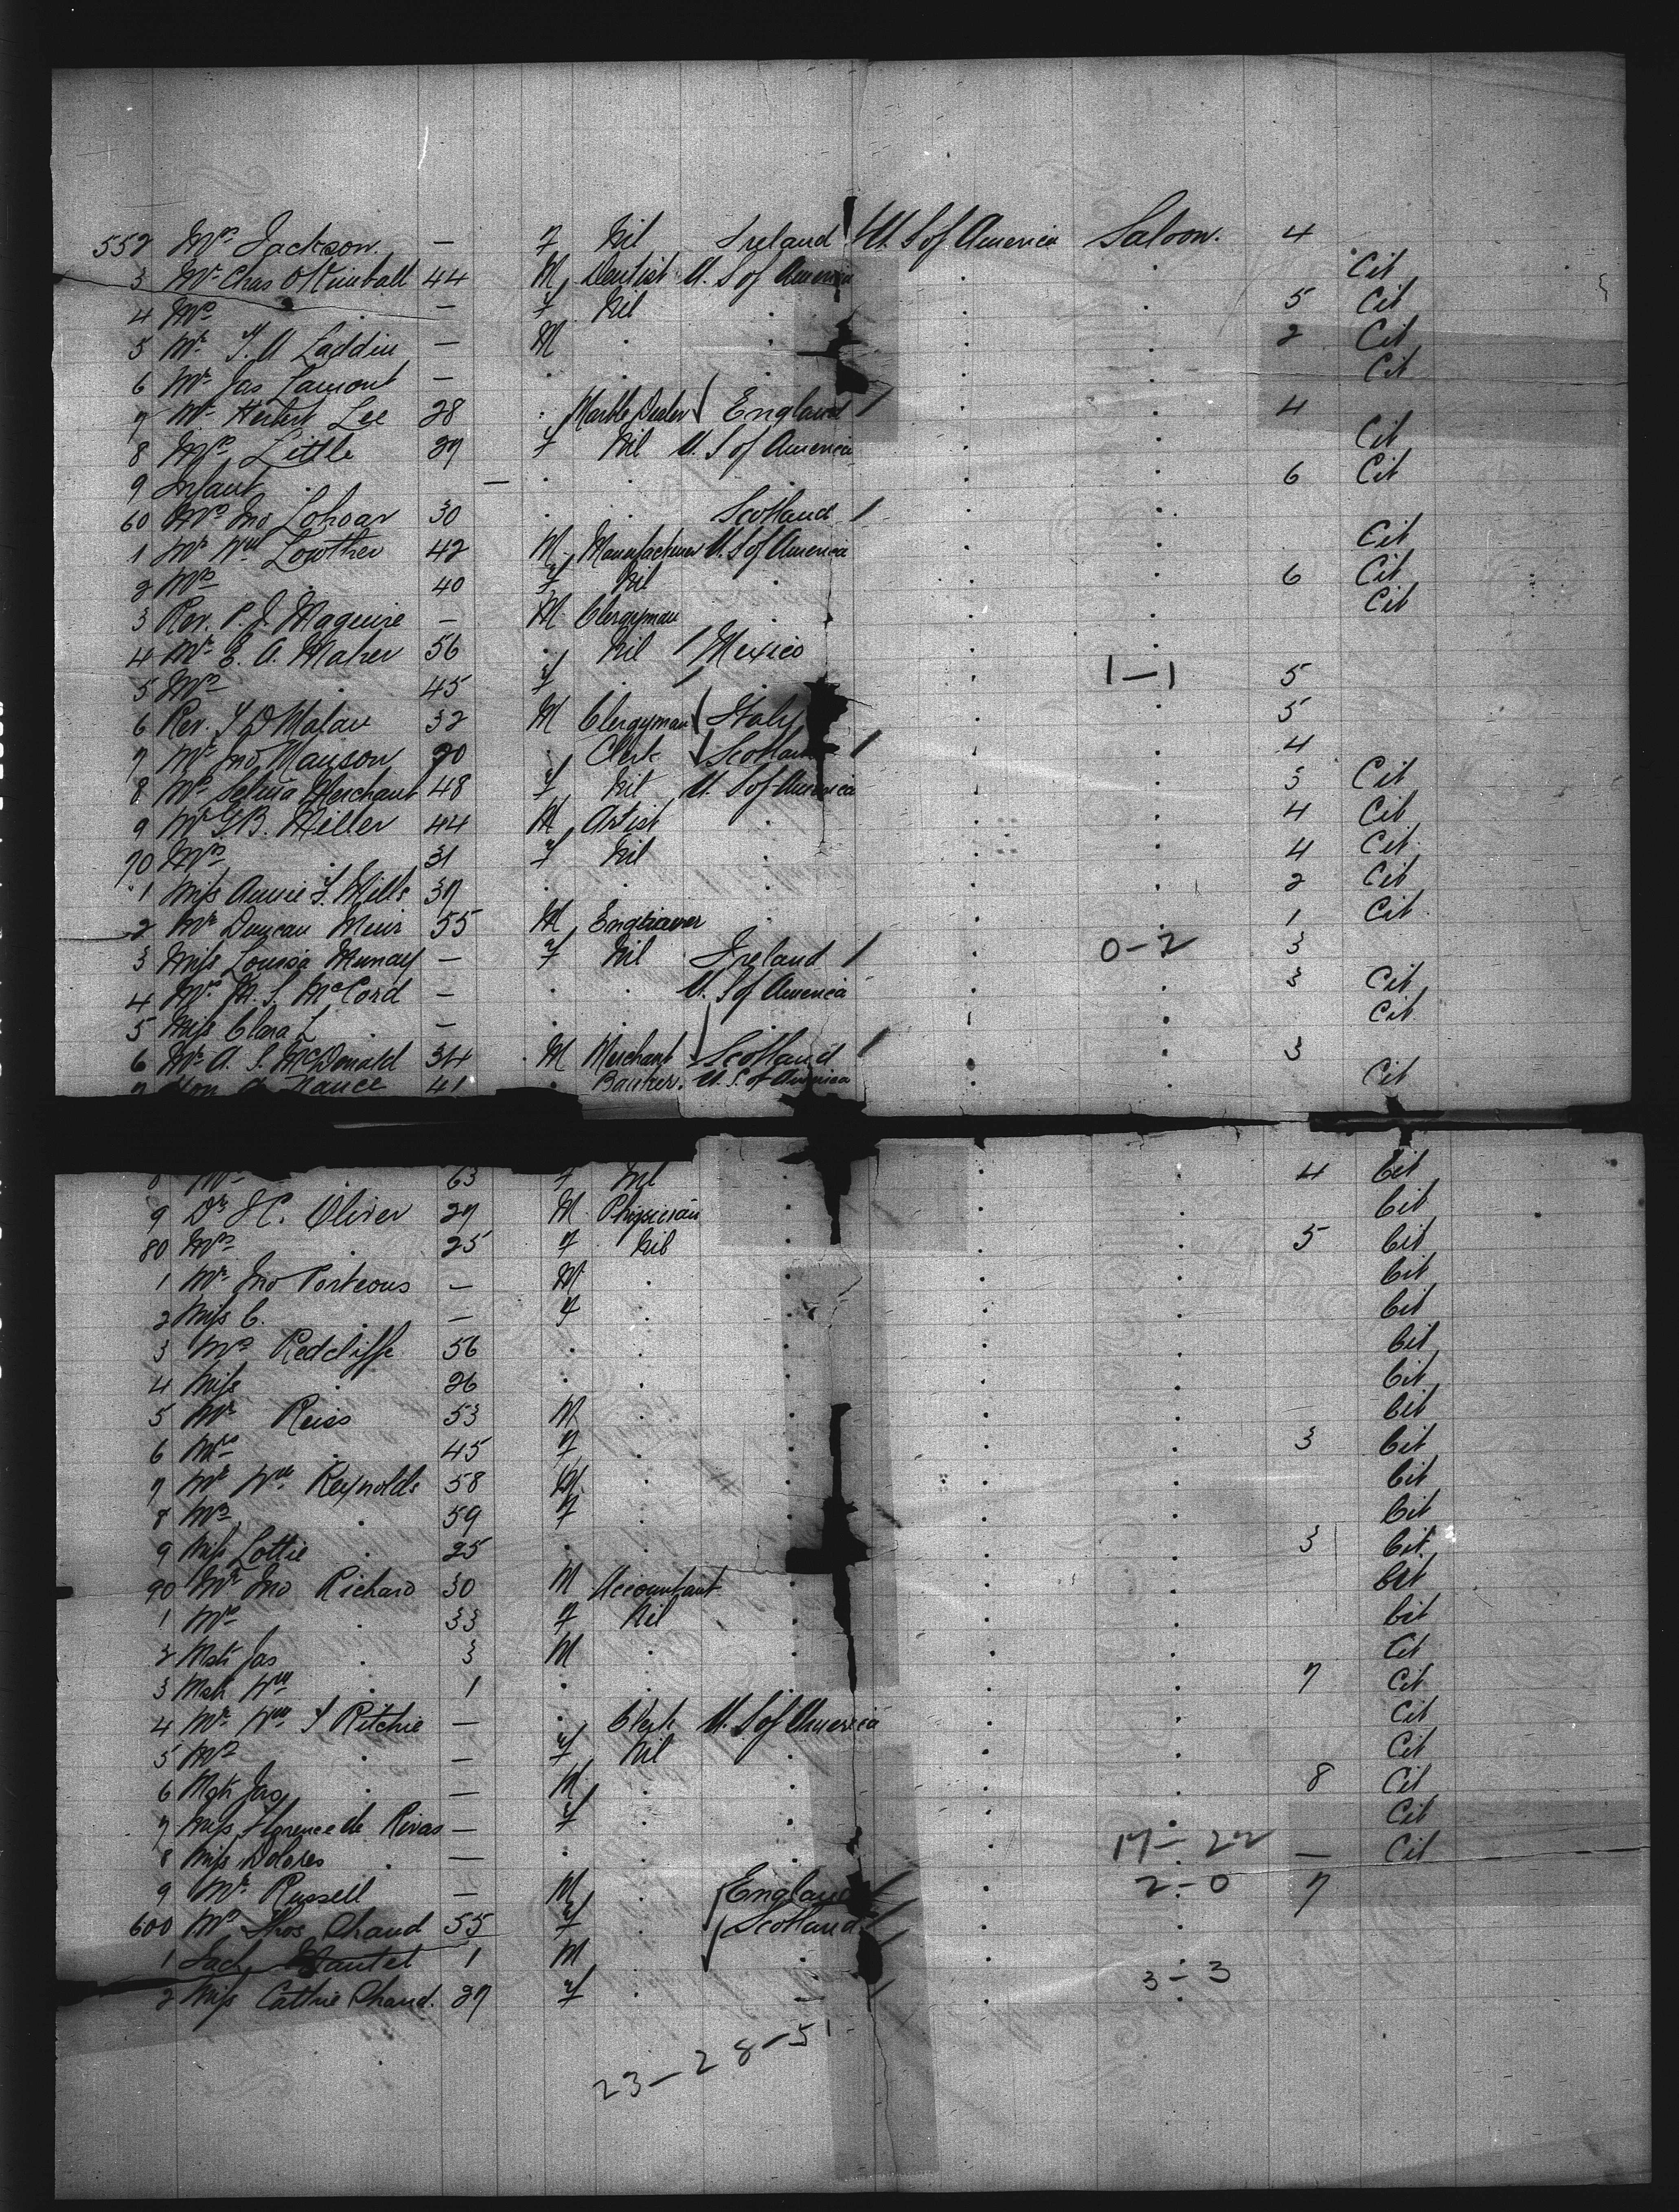 552 Mrs Jackson — F Nil Ireland U. S of America Saloon. 4
3 Mr Chas O Kimball 44 M Dentist U. S of America . . Cit
4 Mrs . — F Nil . . . 5 Cit
5 Mr Laddin — M . . . . 2 Cit
6 Mr Jas Lamont — . . . . . Cit
7 Mr Herbert Lee 28 . Marble Dealer England . . 4
8 Mrs Little 29 F Nil U. S of America . . Cit
9 Infant . — . . . . . 6 Cit
60 Mrs Jno 30 . . Scotland . .
1 Mr Wm Lowther 42 M Manufacturer U. S of America . . Cit
2 Mrs . 40 F Nil . . . 6 Cit
3 Rev. P. J. Maguire — M Clergyman . . . Cit
4 Mr E. A. Maher 56 . Nil Mexico . .
5 Mrs . 45 F . . . 1—1 5
6 Rev. Malan 32 M Clergyman Italy . . 5
7 Mr Jno Manson 20 . Clerk Scotland . . 4
8 Mrs Selina Merchant 48 F Nil U. S of America . . 3 Cit
9 Mr G B. Miller 44 M Artist . . . 4 Cit
70 Mrs . 31 F Nil . . . 4 Cit
1 Miss Annie F. Mills 37 . . . . . 2 Cit
2 Mr Duncan Muir 55 M Engraver . . . 1 Cit
3 Miss Louisa Murray — F Nil Ireland . 0—2 3
4 Mrs M. S. McCord — . . U. S of America . . 3 Cit
5 Miss Clara L . — . . . . . Cit
6 Mr A. S. McDonald 34 M Merchant Scotland . . 3
7 Hon Nance 41 . Banker. U. S. of America . . Cit
8 63 F Nil . . . 4 Cit
9 Dr Oliver 27 M Physician . . . Cit
80 Mrs . 25 F Nil . . . 5 Cit
1 Mr Jno Porteous — M . . . . Cit
2 Miss C. . — F . . . . Cit
3 Mrs Redcliffe 56 . . . . . Cit
4 Miss . 26 . . . . . Cit
5 Mr Reiss 53 M . . . . Cit
6 Mrs . 45 F . . . . 3 Cit
7 Mr Wm Reynolds 58 M . . . . Cit
8 Mrs . 59 F . . . . Cit
9 Miss Lottie . 25 . . . . . 3 Cit
90 Mr Jno Richard 30 M Accountant . . . Cit
1 Mrs . 33 F Nil . . . Cit
2 Mstr Jas . 3 M . . . . Cit
3 Mstr Wm . 1 . . . . . 7 Cit
4 Mr Wm Ritchie — . Clerk U. S of America . . Cit
5 Mrs . — F Nil . . . Cit
6 Mstr Jas . — M . . . . 8 Cit
7 Miss Florence de Rivas — F . . . . Cit
8 Miss Dolores . — . . . . 17—22 — Cit
9 Mr Russell — M . England . 2-0 7
600 Mrs Thos Shand 55 F . Scotland . .
1 1 M . . . .
2 Miss Cathie Shand. 27 F . . . 3-3
23—28—51